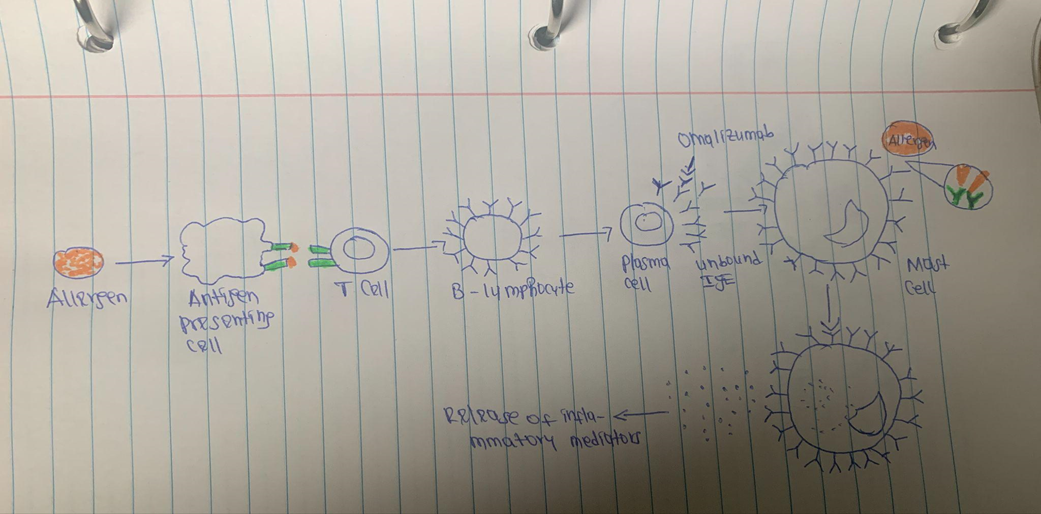 Omalizumab
Allergen
Allergen
Antigen
presenting
cell
T Cell
B-lymphocyte
plasma
cell
unbound
IgE
Mast
Cell
Release of infla-
mmatory mediators